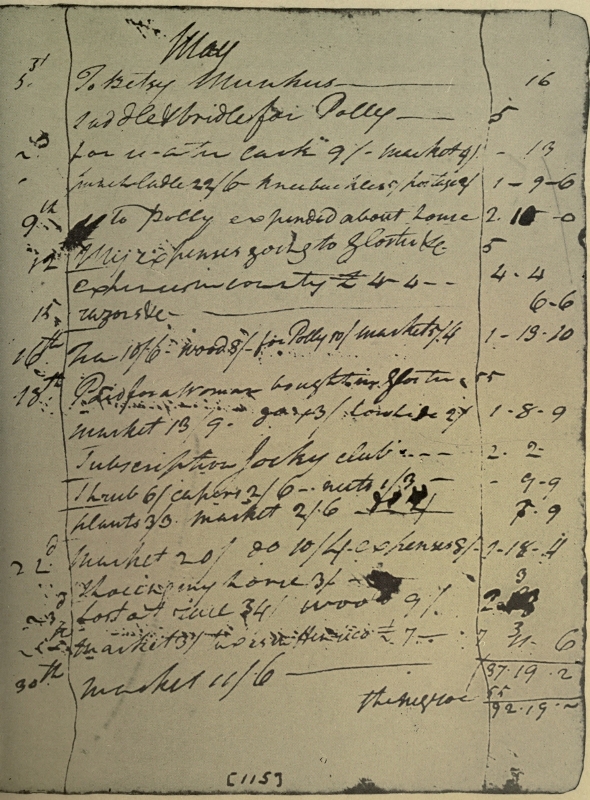 May
3d To Betsy Munkus — 16
5. saddle & bridle for Polly — 5
for cask 9/- market 4/ - 13
punch ladle 22/6 knee buckles 5/ 1 - 9 - 6
9th To Polly expended about house 2. 10 - 0
12 My expenses going to Gloster &c 5
expenses in county £ 4 - 4 - - 4 - 4
15. razors &c - 6-6
16th Tea 10/6 - wood 8/ - for Polly 10/ market 5/4 1 - 13 - 10
18th Paid for a Woman bought in Gloster 55
market 13 9. 1 - 8 - 9
Subscription Jocky club - - - 2. 2
Shrub 6/ capers 2/6 - nuts 1/3 - - 9-9
plants 3/3 market 2/6 7. 9
22d market 20/ do 10/4 expenses 8/ 1-18-4
Shoeing my horse 3/ 3
23d lost at 34/ wood 9/ 2
market 3/ Henrico £ 7 - 7 3
30th market 11/6 — 11. 6
37.19.2
the negroe 55
92.19.2
[115]